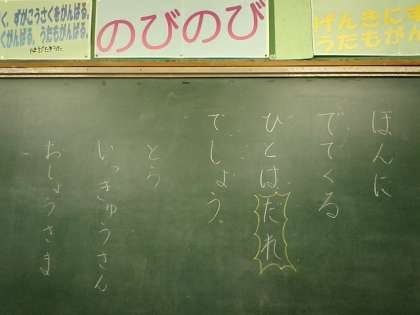 く、ずがこうさくをがんばる、
くがんばる、うたもがんばる、
のびのび
げんきにす
うたもがん
ほんに
でてくる
ひとはだれ
でしょう。
とう
いっきゅうさん
おしょうさま